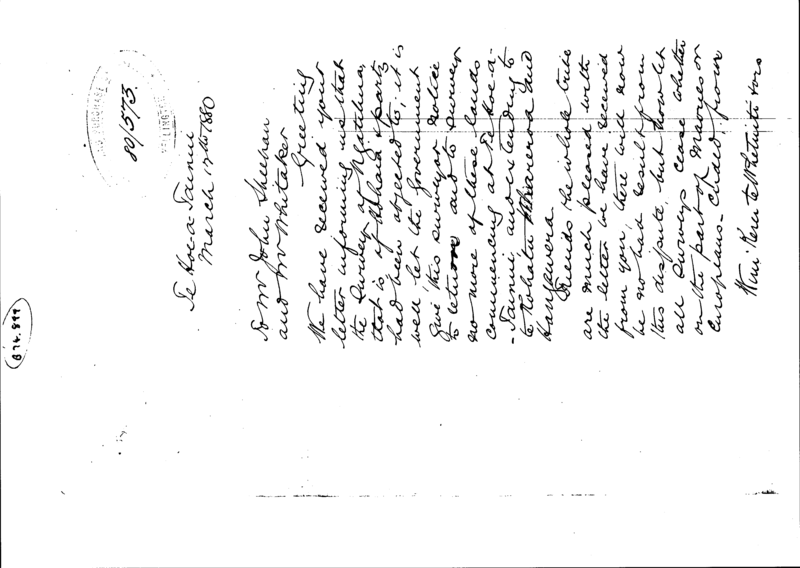 B74.899
80/573
Te Hoe-a-Tainui
March 17th 1880
To Mr John Sheehan
and Mr Whitaker
Greeting
We have received your
letter informing us that
the Survey of
that is of Hohaia & party
had been objected to, it is
well let the government
give this surveyor notice
to return and to survey
no more of these lands
commencing at Te Hoe-a-
-Tainui and extending to
and
Hangawera
Friends, the whole tribe
are much pleased with
the letter we have received
from you, there will now
be no bad result from
this dispute, but though let
all surveys cease whether
on the part of Maories or
Europeans - Ended, from